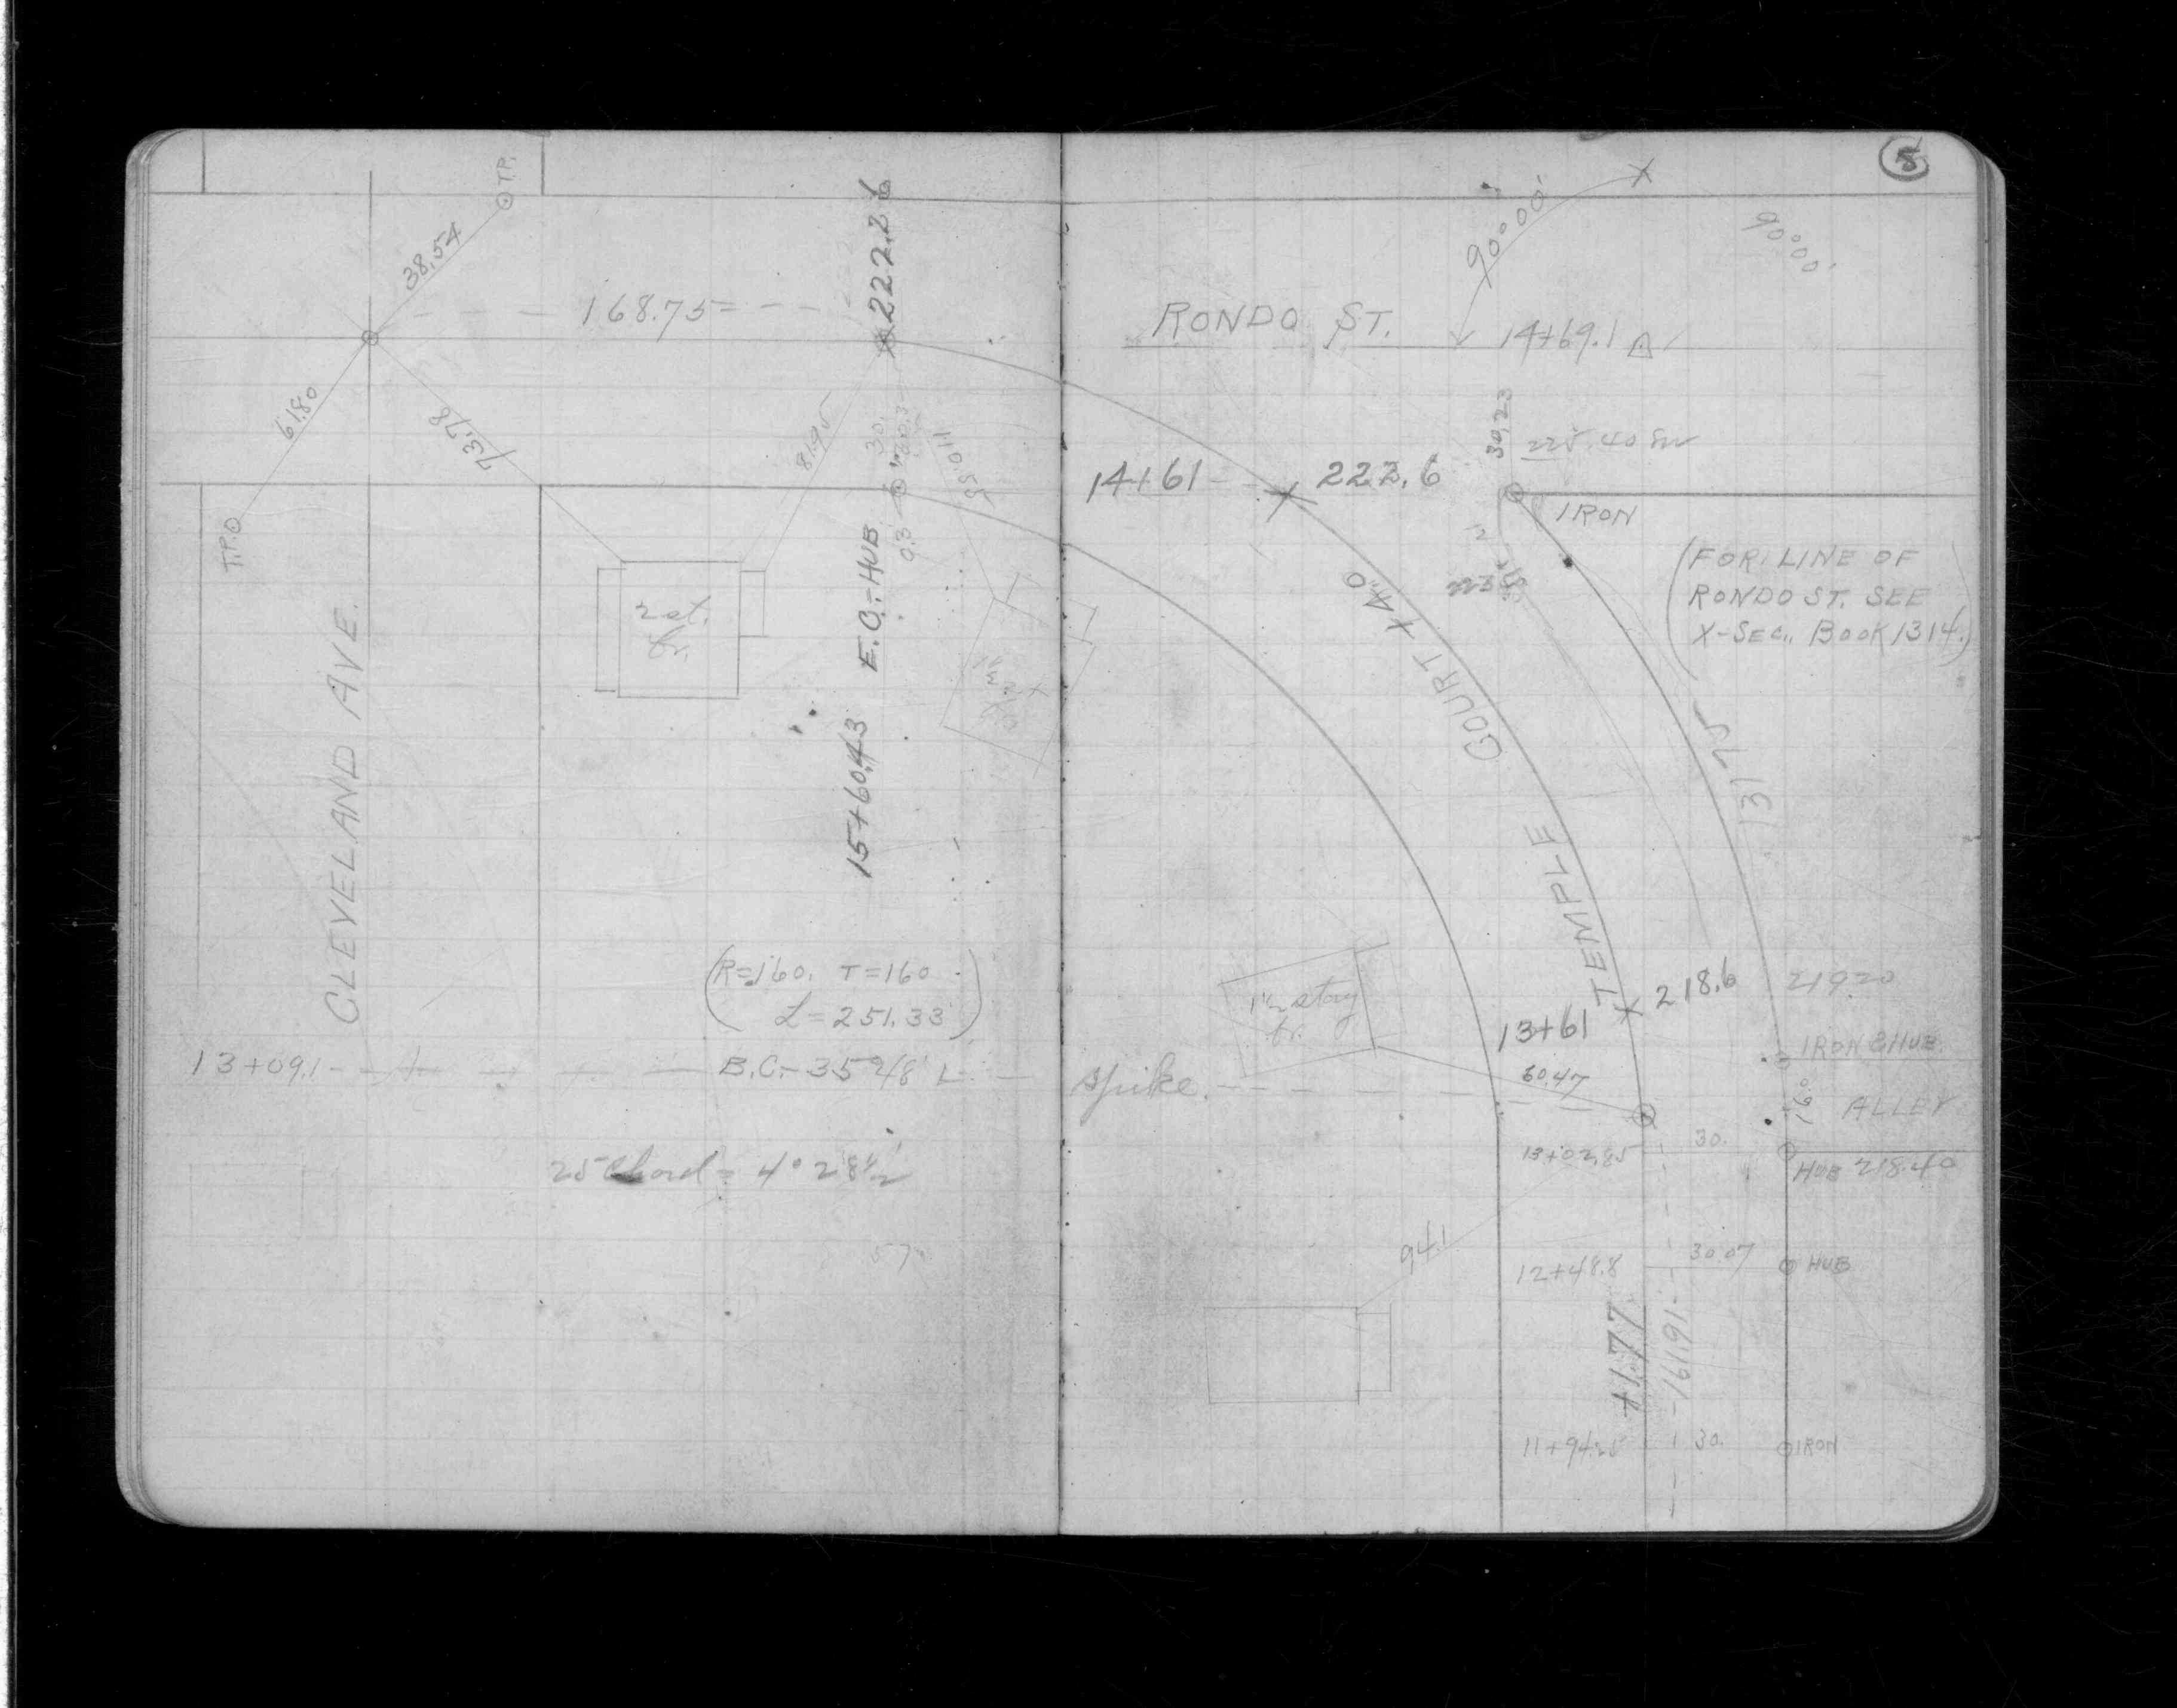 5
T.P.
38.54
222.26
90°00'
90°00'
168.75
RONDO ST.
14+69.1
61.80
73.78
81.95
30.
110.55
30.23
225.40
14+61
222.6
IRON
T.P.
0.3
E.C.-HUB
(FOR LINE OF
RONDO ST. SEE
X-SEC. BOOK 1314.)
2 st.
fr.
4.0
TEMPLE COURT
CLEVELAND AVE.
15+60.43
131.75
(R=160. T=160
L=251.33)
1½ story
fr.
218.6
219.20
13+61
IRON & HUB
13+09.1
B.C.-35°48' L
spike.
60.47
16.0
ALLEY
25 Chord = 4° 28½'
13+02.85
30.
HUB 218.40
94.1
12+48.8
30.07
HUB
+1.77
161.91
11+94.25
30.
IRON